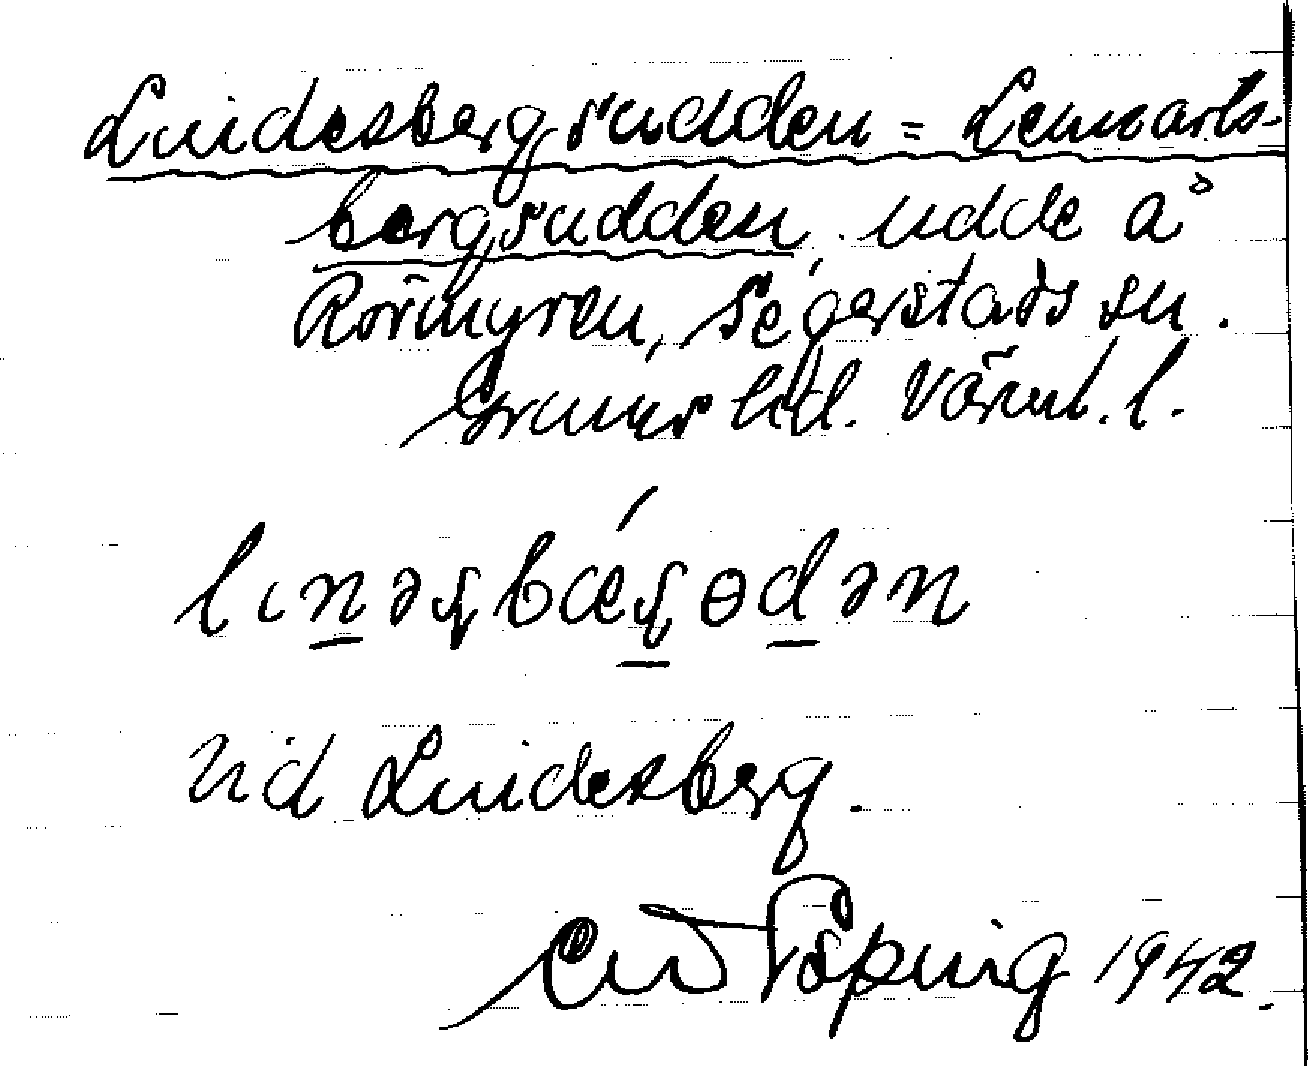 Lindesbergsudden = Lennarts-
bergsudden, udde å
Rörmyren, Segerstads sn.
Grums hd. Värml. l.
lınəʂbǽʂɵdən
Vid Lindesberg.
Töping 1942.